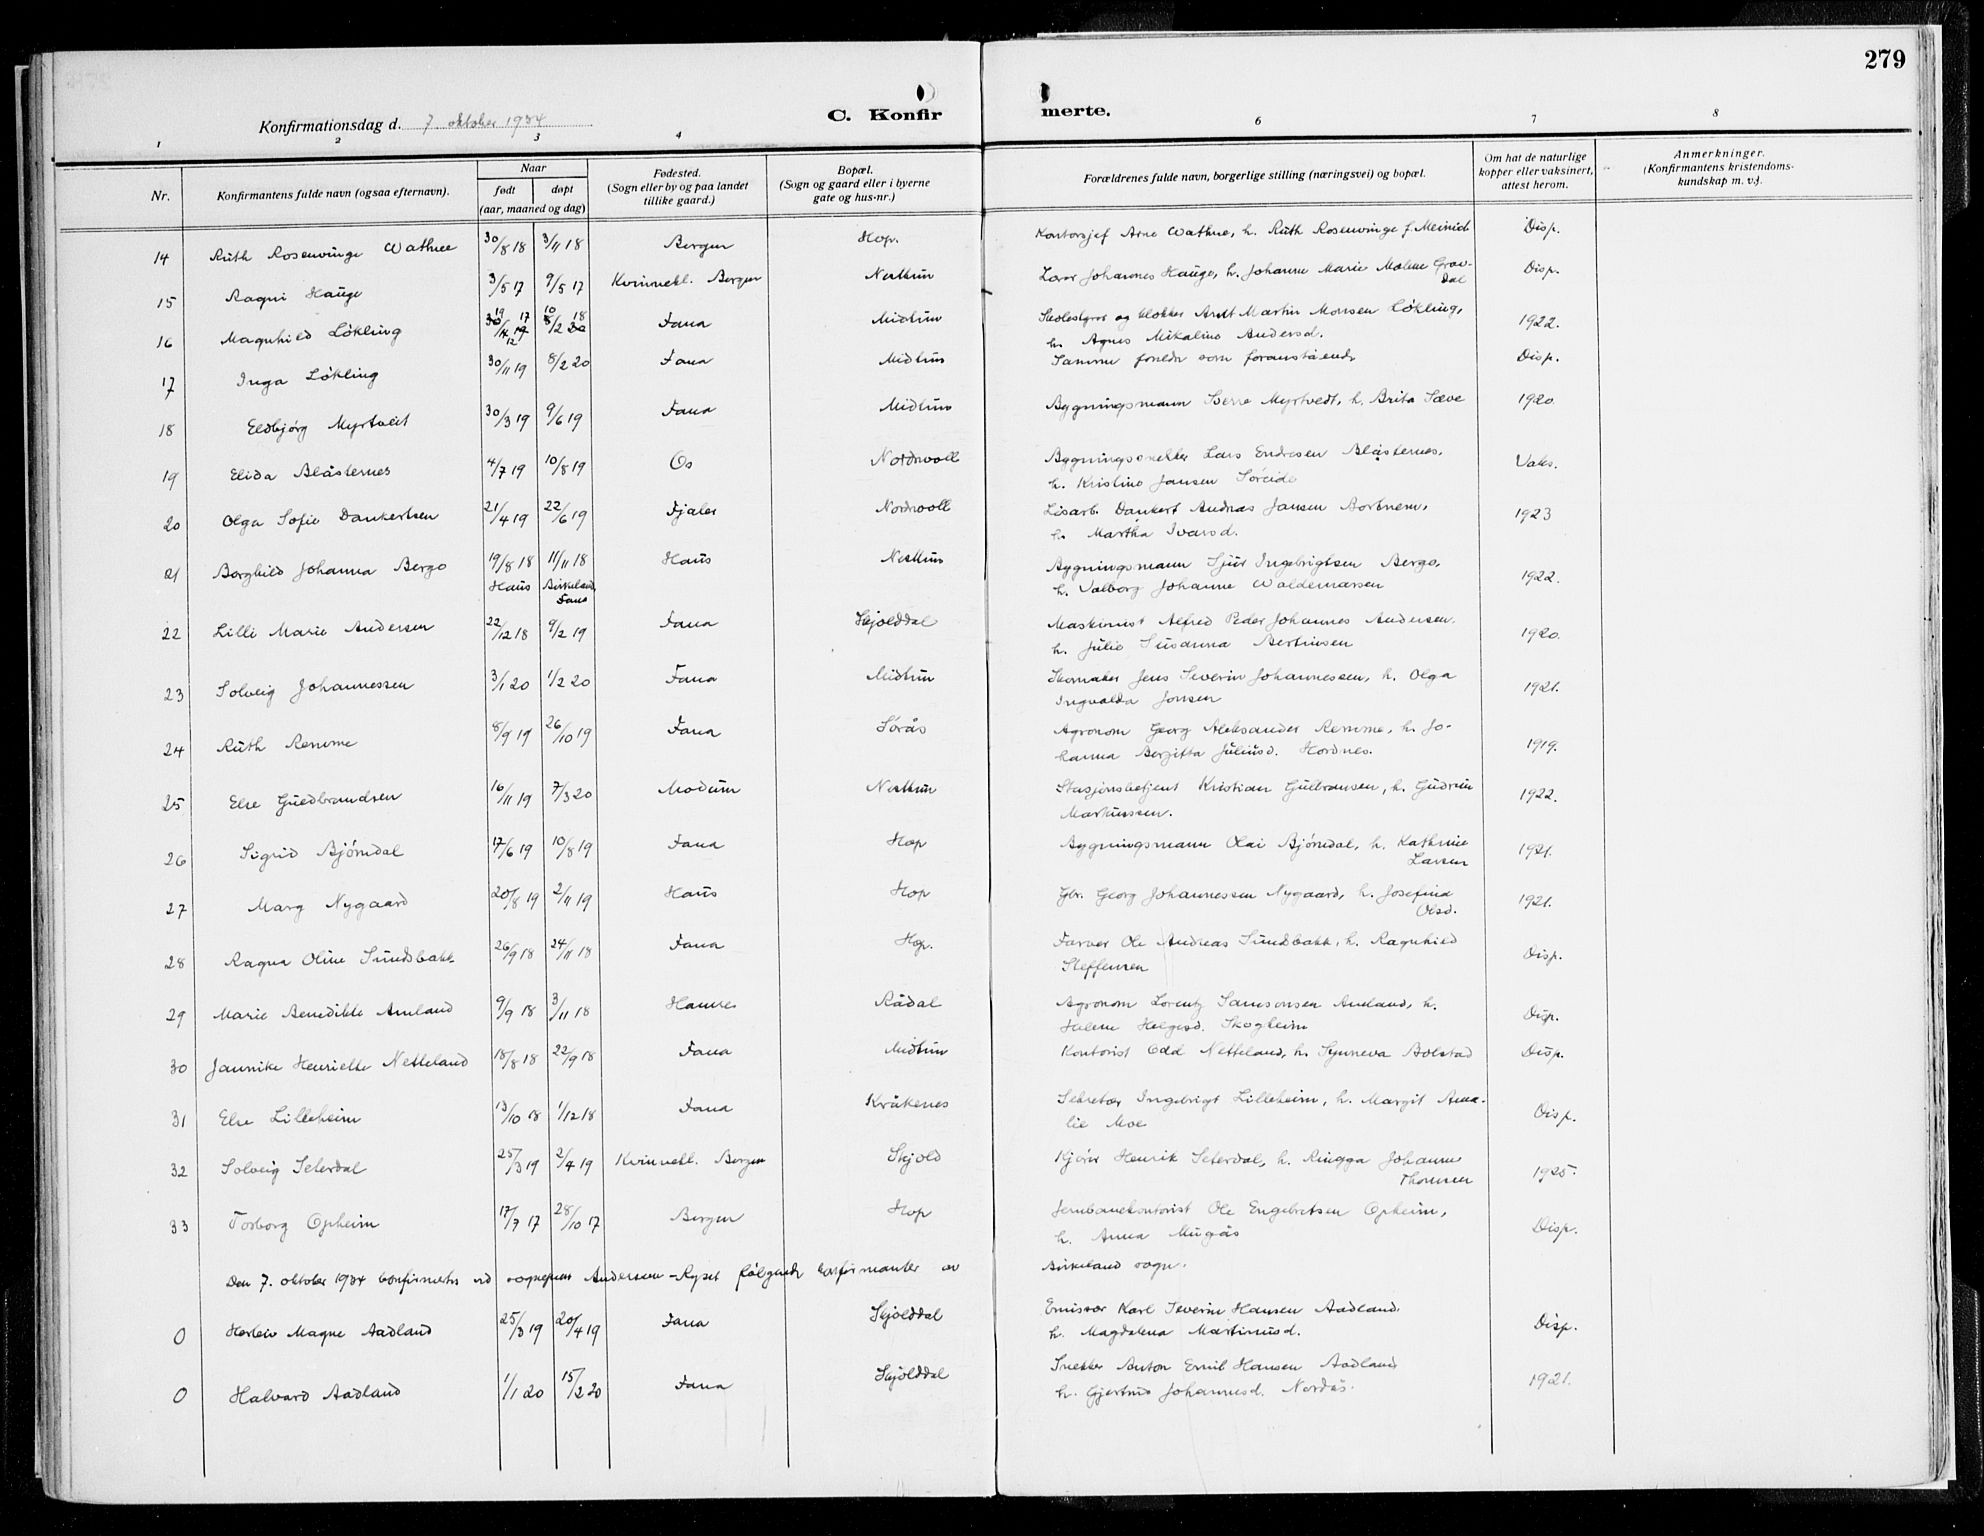 279
Konfirmationsdag d. 7. oktober 1934
C. Konfir merte.
1 2 3 4 6 7 8
Nr. Konfirmantens fulde navn (ogsaa efternavn). Naar født døpt (aar, maaned og dag) Fødested. (Sogn eller by og paa landet tillike gaard.) Bopæl. (Sogn og gaard eller i byerne gate og hus-nr.) Forældrenes fulde navn, borgerlige stilling (næringsvei) og bopæl. Om hat de naturlige kopper eller vaksinert, attest herom. Anmerkninger. (Konfirmantens kristendoms-kundskap m. v.).
14 Ruth Rosenvinge Wathne 30/8 18 3/11 18 Bergen Hop. Kontorsjef Arne Wathne, h. Ruth Rosenvinge f. Meinich Disp.
15 Ragni Hauge 3/5 17 9/5 17 Kvinnekl. Bergen Nesttun Lærer Johannes Hauge, h. Johanne Marie Malene Grav-
dal Disp.
16 Magnhild Løkling 19/12 17 10/2 18 Fana Midtun Skolestyrer og klokker Arnt Martin Monsen Løkling,
h. Agnes Mikaline Andersd. 1922.
17 Inga Løkling 30/11 19 8/2 20 Fana Midtun Samme foreldre som foranstående Disp.
18 Eldbjørg Myrtveit 30/3 19 9/6 19 Fana Midtun Bygningsmann Sverre Myrtvedt, h. Brita Sæve 1920.
19 Elida Blåsternes 4/7 19 10/8 19 Os Nordvoll Bygningssnekker Lars Endresen Blåsternes,
h. Kristine Jansen Søreide Vaks.
20 Olga Sofie Dankertsen 21/4 19 22/6 19 Fjaler Nordvoll Løsarb. Dankert Andreas Jansen Bortnem,
h. Martha Ivarsd. 1923
21 Borghild Johanna Bergo 19/8 18 11/11 18 Haus Nesttun Bygningsmann Sjur Ingebrigtsen Bergo,
Haus Birkeland, Fana h. Valborg Johanne Waldemarsen 1922.
22 Lilli Marie Andersen 22/12 18 9/2 19 Fana Skjolddal Maskinist Alfred Peder Johannes Andersen,
h. Julie Susanna Bertinsen 1920.
23 Solveig Johannessen 3/1 20 1/2 20 Fana Midtun Skomaker Jens Severin Johannessen, h. Olga
Ingvalda Jonsen 1921.
24 Ruth Remme 8/9 19 26/10 19 Fana Sørås Agronom Georg Aleksander Remme, h. Jo-
hanna Bergitta Juliusd. Hordnes. 1919.
25 Else Guldbrandsen 16/11 19 7/3 20 Modum Nesttun Stasjonsbetjent Kristian Gulbransen, h. Gudrun
Markussen. 1922.
26 Sigrid Bjørndal 17/6 19 10/8 19 Fana Hop Bygningsmann Olai Bjørndal, h. Kathrine
Larsen 1921.
27 Marg Nygaard 20/8 19 2/11 19 Haus Hop Gbr. Georg Johannessen Nygaard, h. Josefine
Olsd. 1921.
28 Ragna Oline Sundsbakk 26/9 18 24/11 18 Fana Hop. Farver Ole Andreas Sundsbakk, h. Ragnhild
Steffensen Disp.
29 Marie Benedikte Amland 9/9 18 3/11 18 Hamre Rådal Agronom Lorentz Samsonsen Amland, h.
Helene Helgesd. Skogheim Disp.
30 Jannike Henriette Netteland 18/8 18 22/9 18 Fana Midtun Kontorist Odd Netteland, h. Synneva Bolstad Disp.
31 Else Lilleheim 13/10 18 1/12 18 Fana Kråkenes Sekretær Ingebrigt Lilleheim, h. Margit Ama-
lie Moe Disp.
32 Solveig Seterdal 25/3 19 2/4 19 Kvinnekl. Bergen Skjold Kjører Henrik Seterdal, h. Ringga Johanne
Thomsen 1925.
33 Torborg Opheim 17/7 17 28/10 17 Bergen Hop Jernbanekontorist Ole Engebretsen Opheim,
h. Anna Mugås Disp.
Den 7. oktober 1934 konfirmertes ved sogneprest Andersen-Ryset følgende konfirmanter av Birkeland sogn.
0 Herleiv Magne Aadland 25/3 19 20/4 19 Fana Skjolddal Emissær Karl Severin Hansen Aadland,
h. Magdalena Martinusd. Disp.
0 Halvard Aadland 1/1 20 15/2 20 Fana Skjolddal Snekker Anton Emil Hansen Aadland
h. Gjertrud Johannesd. Nordås. 1921.